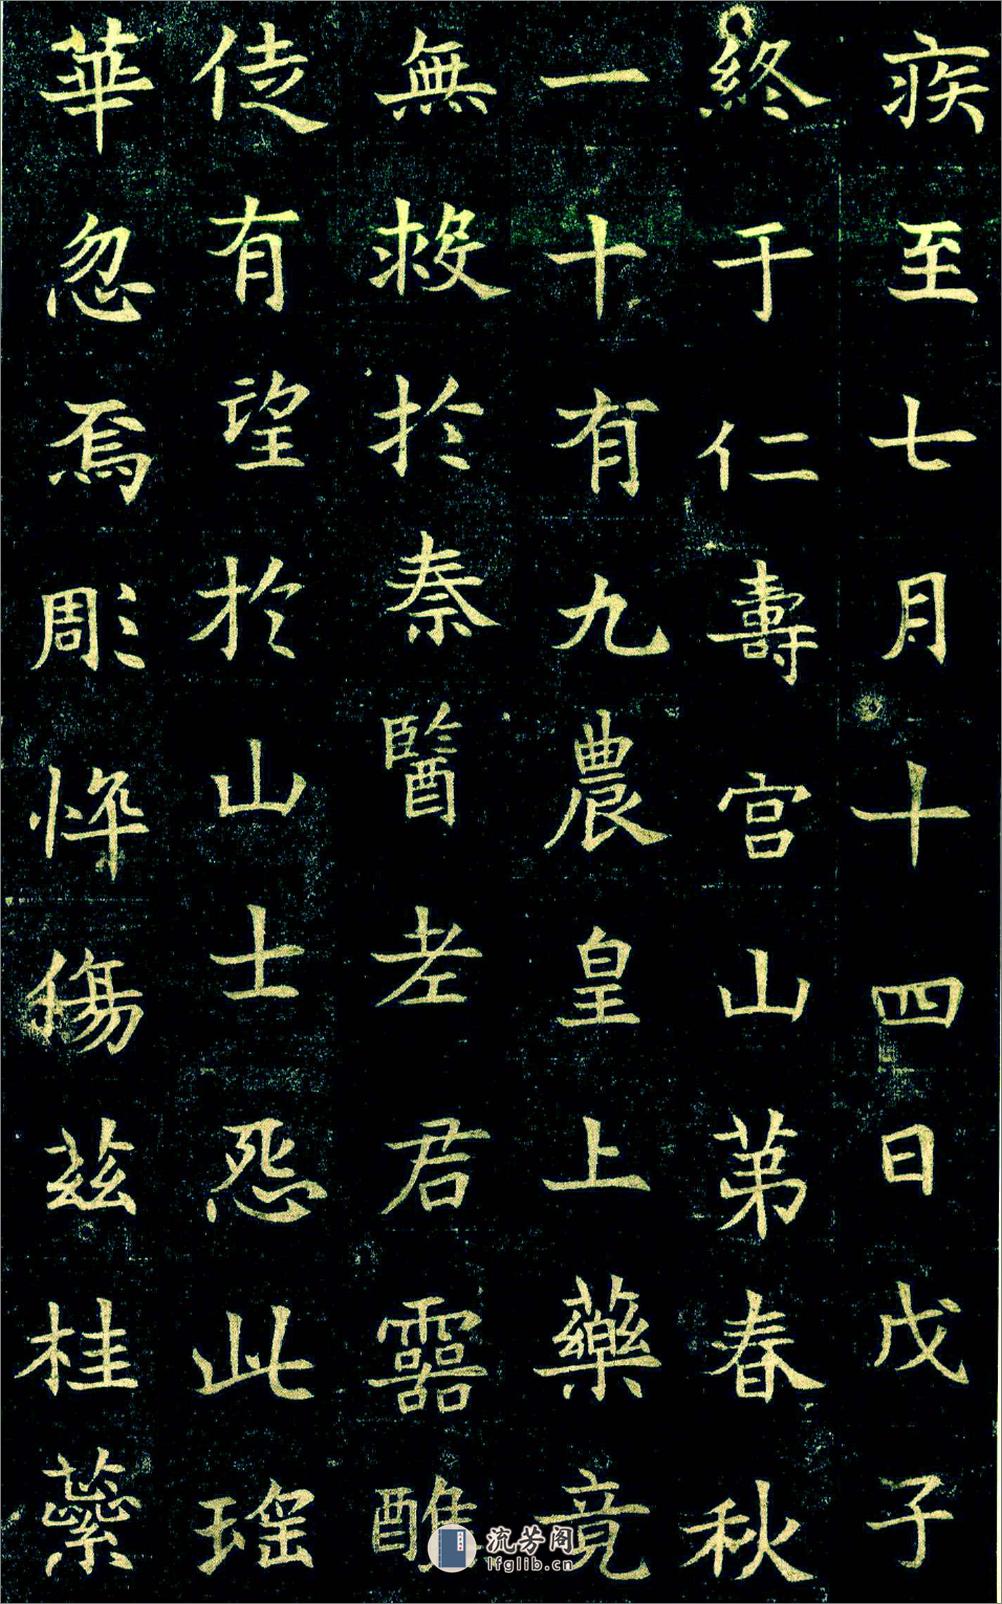 疾至七月十四日戊子
終于仁壽宮山第春秋
一十有九農皇上藥竟
無救於秦醫老君靈醮
徒有望於山士怨此瑤
華忽焉彫悴傷茲桂蘂
流芳阁
lfglib.cn